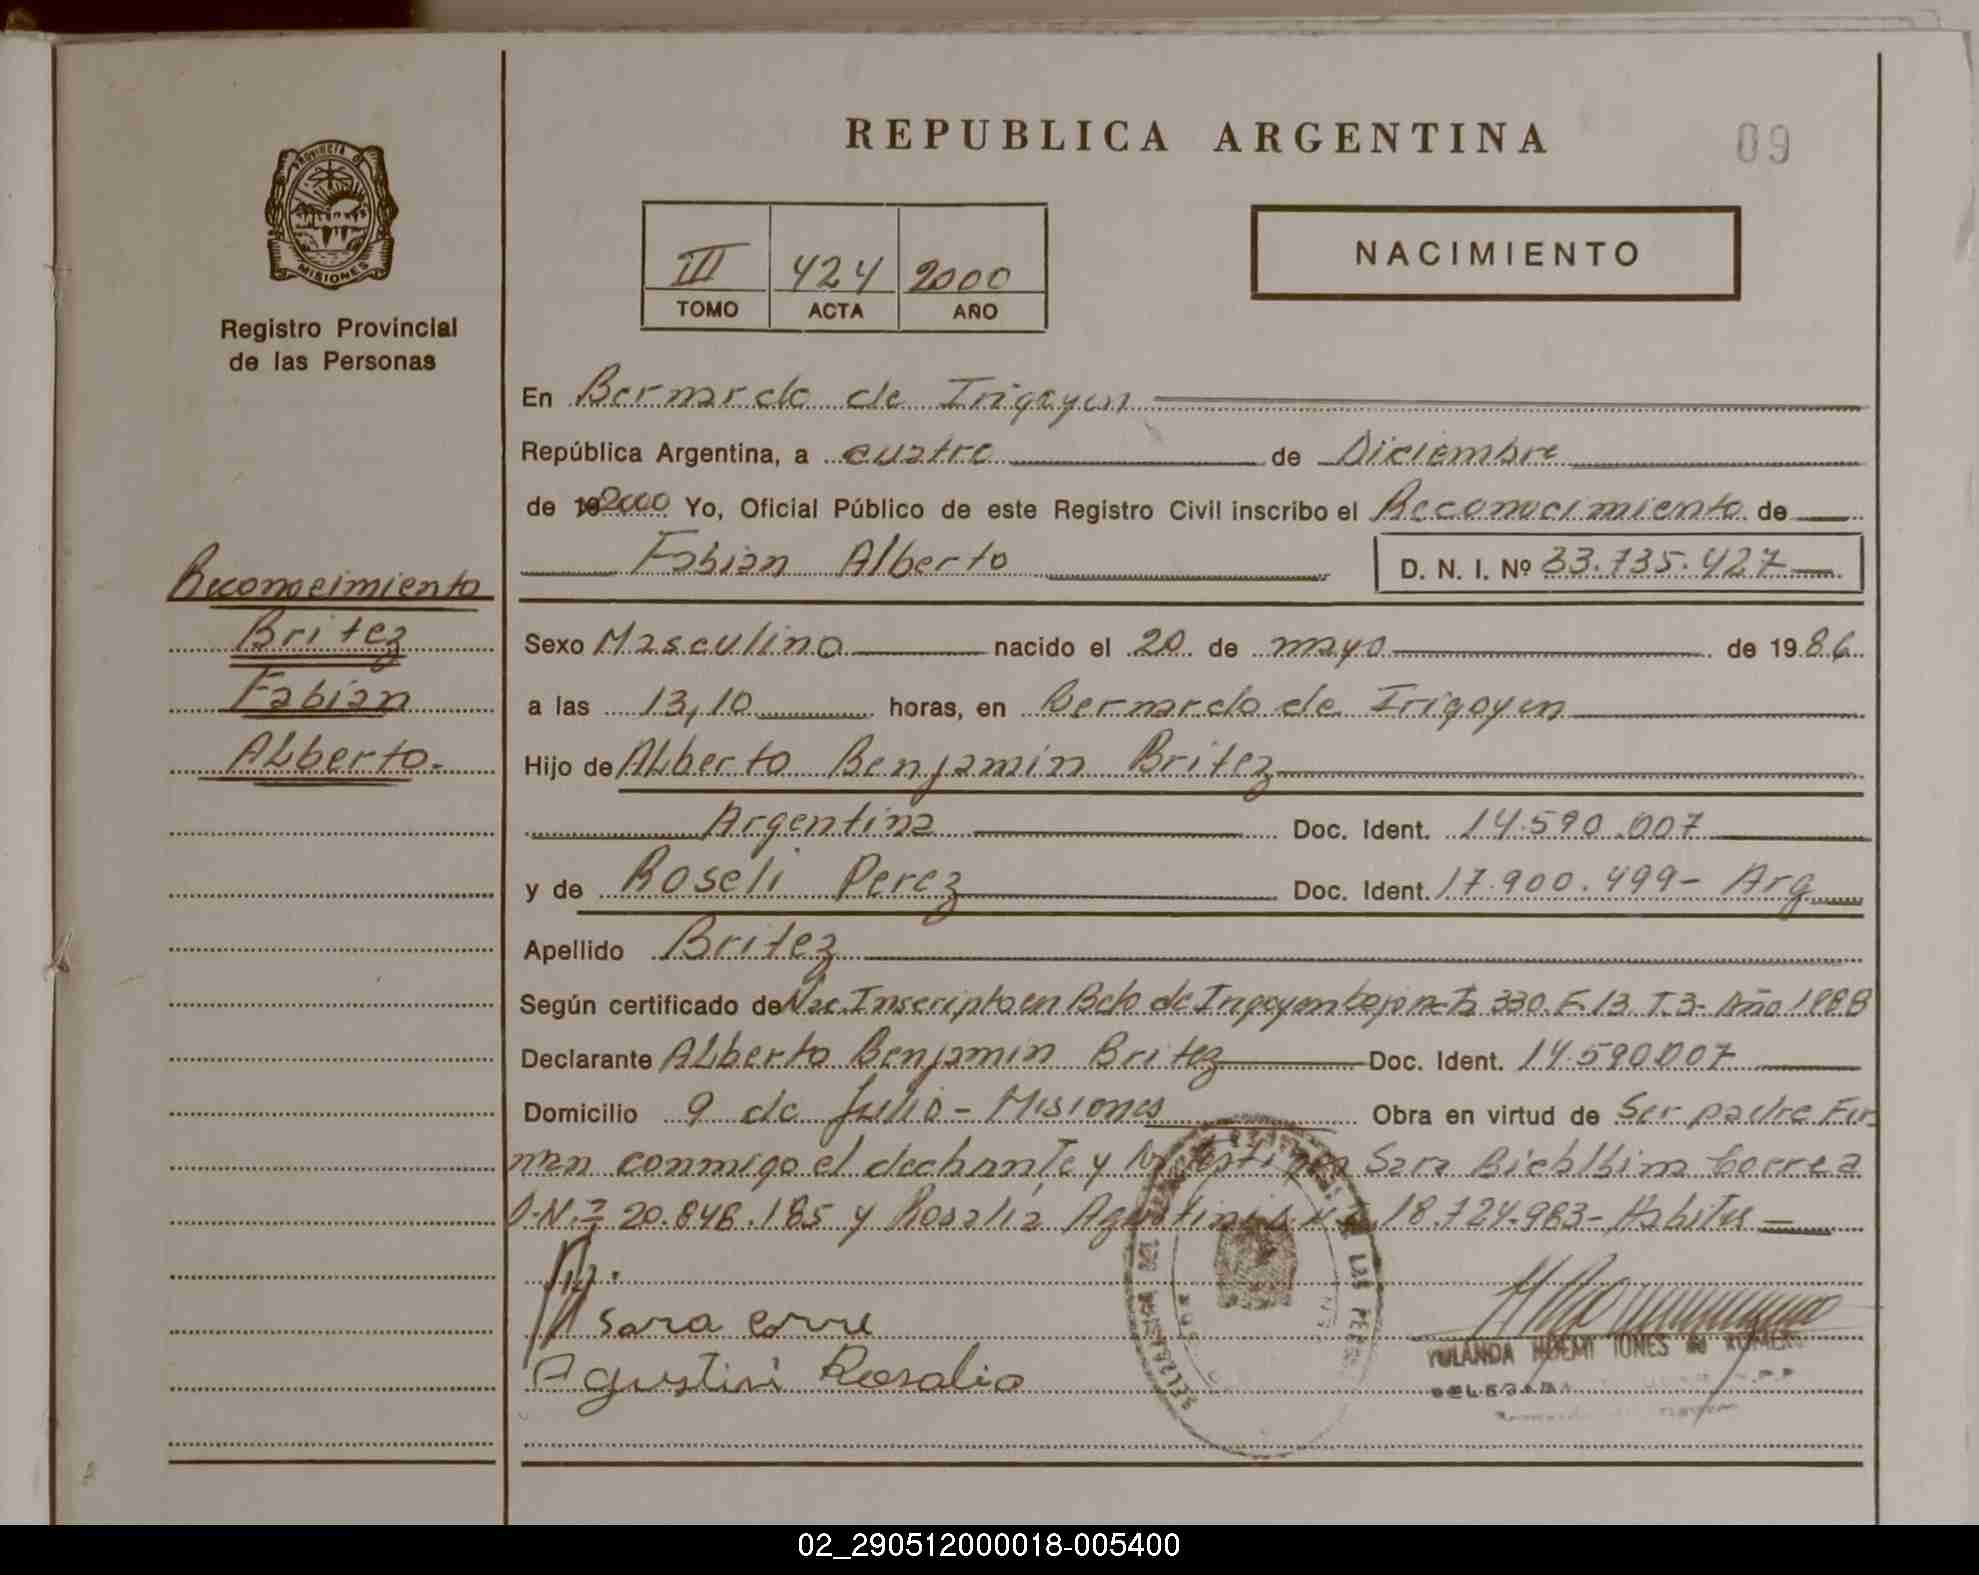 REPUBLICA ARGENTINA
09
PROVINCIA D
MISIONES
Registro Provincial
de las Personas
III 424 2000
TOMO ACTA AÑO
NACIMIENTO
En Bernardo de Irigoyen
República Argentina, a cuatro de Diciembre
de 2000 Yo, Oficial Público de este Registro Civil inscribo el Reconocimiento de
Fabian Alberto D. N. I. Nº 33.735.427
Reconocimiento
Britez
Fabian
Alberto.-
Sexo Masculino nacido el 20 de mayo de 1986
a las 13,10 horas, en Bernardo de Irigoyen
Hijo de Alberto Benjamin Britez
Argentina Doc. Ident. 14.590.007
y de Roseli Perez Doc. Ident. 17.900.499- Arg
Apellido Britez
Según certificado de Nac. Inscripto en Bdo de Irigoyen bajo acta 330. F-13 T.3- Año 1988
Declarante Alberto Benjamin Britez Doc. Ident. 14.590.007
Domicilio 9 de Julio - Misiones Obra en virtud de Ser padre Fir
man conmigo el declarante y los testigos Sara Correa
20.848.185 y Rosalia Agustini 18.724.983- Habiles
Sara Corre
Agustini Rosalia
YOLANDA NOEMI IONES de ROMERO
DELEGADA
02_290512000018-005400